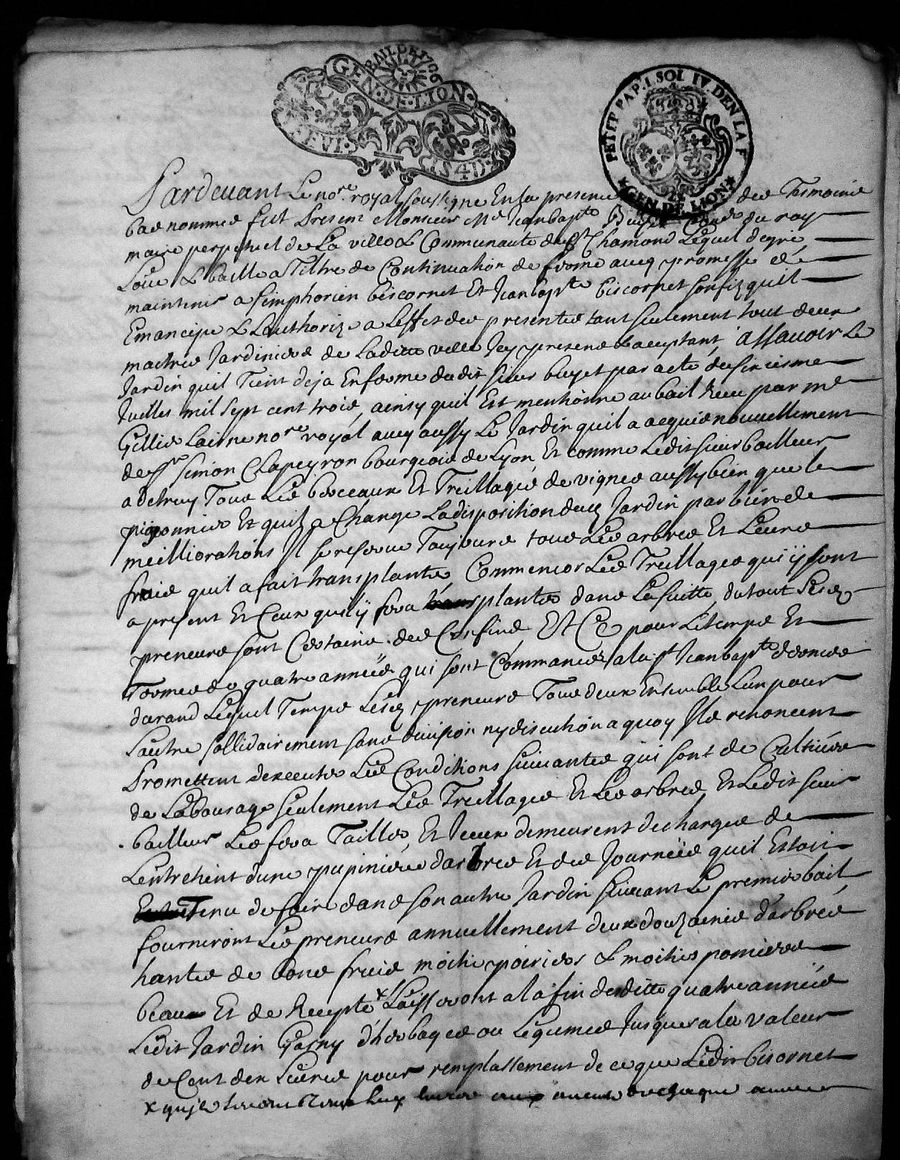 BAIL DE 1706
GEN · DE · LION
PETIT PAP. 1 SOL IV DEN LA F
GEN. DE LION
Pardevant Le no.re royal soussigne En sa presence des Tesmoins
bas nommes fust present Monsieur M.e Jean bap.te
maire perpetuel de La ville & Communauté de S.t Chamond Lequel de gré
Loue & baille a Tiltre de Continuation de ferme avec promesse de
maintenir a Simphorien biscornet Et Jean bap.te biscornet son fiz quil
Emancipe & Lauthorize a Leffet des presentes tant seulement tout deux
maitres Jardiniers de Laditte ville Icy presens & acceptant assavoir Le
Jardin quil Tient deja En ferme dudit sieur buyet par acte du sixiesme
Juillet mil sept cent trois, ainsy quil Est mentionné au bail Receu par me
Gillier Laisne no.re royal avec aussy Le Jardin quil a acquis nouvellement
de S.r Simon Clapeyron bourgeois de Lyon Et comme Ledit sieur bailleur
a detruy Tous Les berceaux Et Treillages de vignes aussy bien que le
pigeonnier Et quil a Changé La disposition dud Jardin par bien de
meilliorations Il se reserve Toujours tous Les arbres Et Leurs
fruis quil a fait transplanter Comme aussi Les Treillages qui y sont
a present Et Ceux quil y fera planter dans La suitte du tout Lesd
preneurs sont Certains Et Ce pour Le temps Et
Termes de quatre années qui sont Commancés a la s.t Jean bap.te derniere
durand Lequel Temps Lesd preneurs Tous deux Ensemble Lun pour
Lautre sollidairement sans division ny discution a quoy Ils renoncent
Promettent dexecuter Les Conditions suivantes qui sont de Cultiver
de Labourage seulement Les Treillages Et Les arbres Et Ledit sieur
bailleur Les fera Tailler, Et Iceux demeurent decharges de
Lentretient dune pepiniere darbres Et des Journées quil Estoit
tenu de fair dans son autre Jardin suivant Le premier bail
fourniront Les preneurs annuellement deux douzaines darbres
hantes de bons fruis moitie poiriers & moitier pomiers
beaux Et de Recepte x Laisseront a la fin desditte quatre années
Ledit Jardin Garny dherbages ou Legumes Jusques a la valeur
de Cent dix Livres pour remplassement de ce que Ledit biscornet